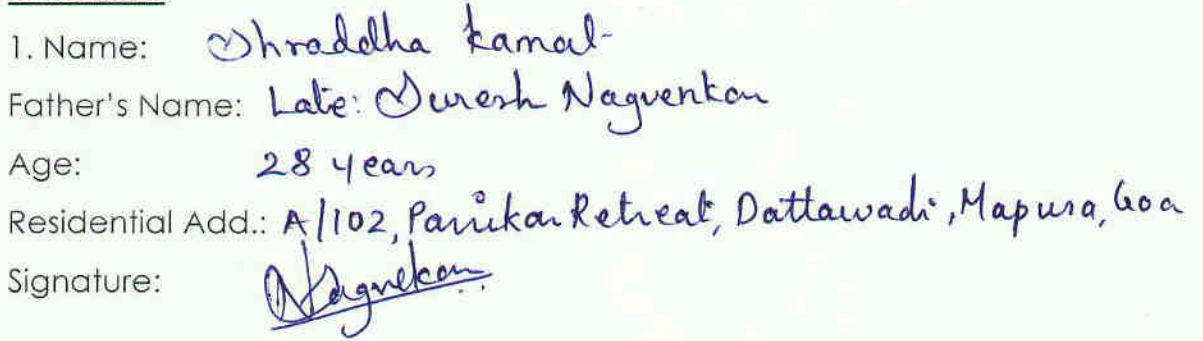 1. Name: Shraddha Kamal
Father's Name: Late: Suresh Nagvenkar
Age: 28 years
Residential Add.: A/102, Parrikar Retreat, Dattawadi, Mapusa, Goa
Signature: Nagvekar